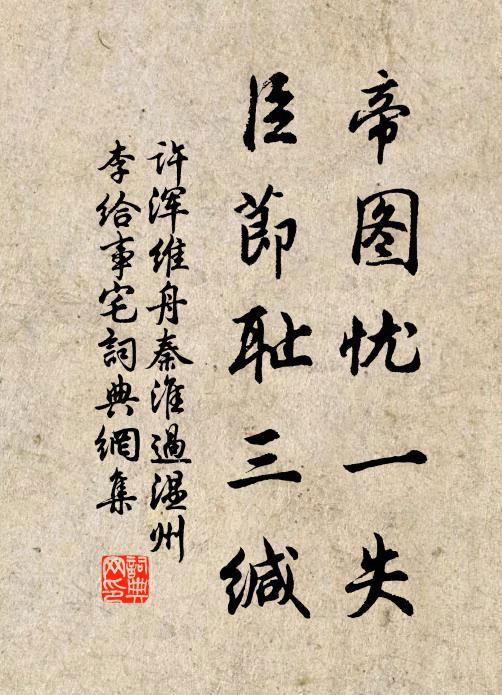 帝图忧一失
臣節耻三缄
许浑维舟秦淮過温州
李给事宅詞典網集
詞典
网印